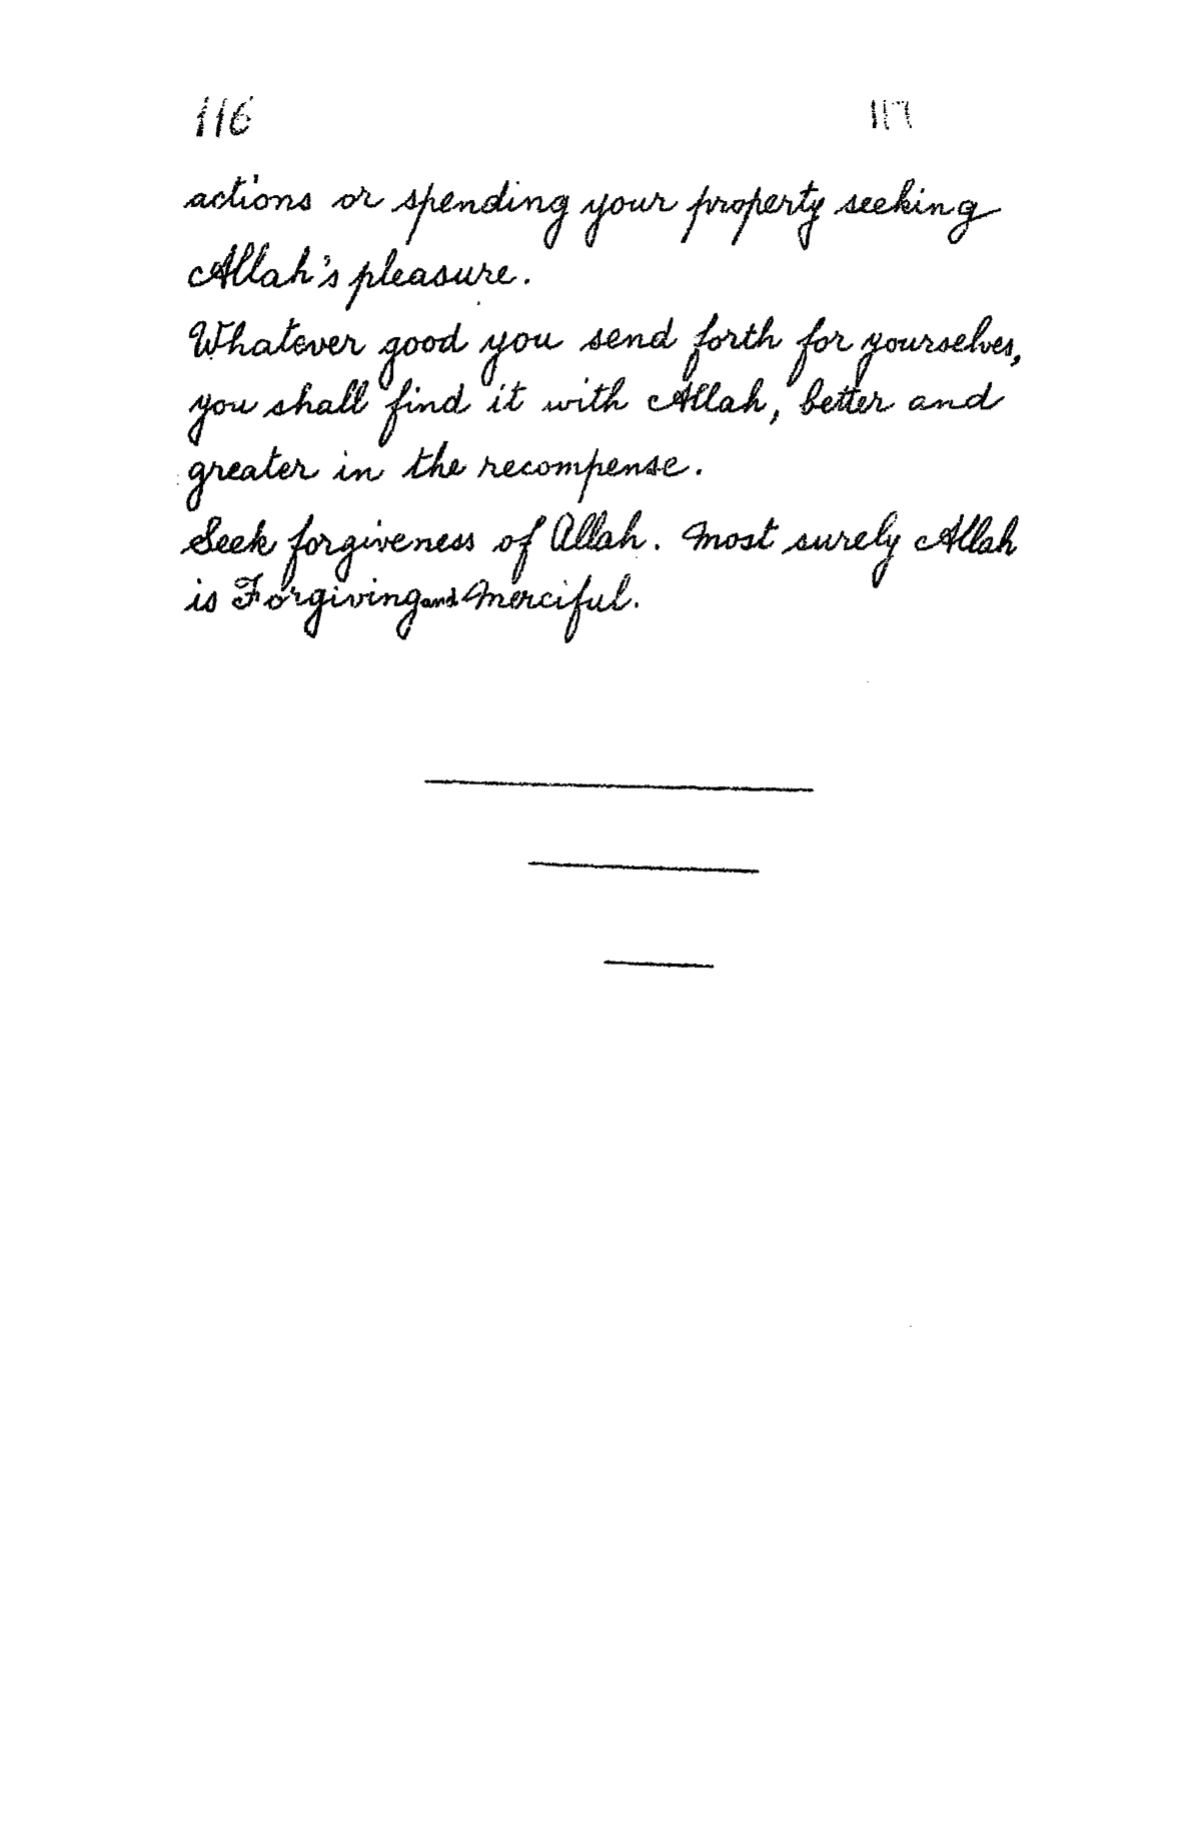 116 117
actions or spending your property seeking
Allah's pleasure.
Whatever good you send forth for yourselves,
you shall find it with Allah, better and
greater in the recompense.
Seek forgiveness of Allah. Most surely Allah
is Forgiving and Merciful.